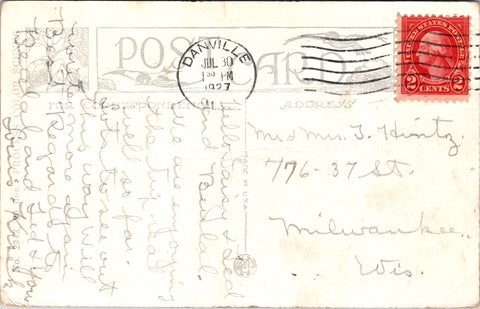 POST CARD
DANVILLE
JUL 30
1 30 PM
1927
ILL.
UNITED STATES POSTAGE
2 CENTS 2
FOR CORRESPONDENCE
ADDRESS
MADE IN U.S.A.
Mr & Mrs. T. Hintz.
776-37 St.
Milwaukee,
Wis.
Hello Tary & Ted
and Beulah.
we are enjoying
the trip real
well so far.
lots to see out
this way. Will
write more again
Best Regards to
Beulah and Ted & You